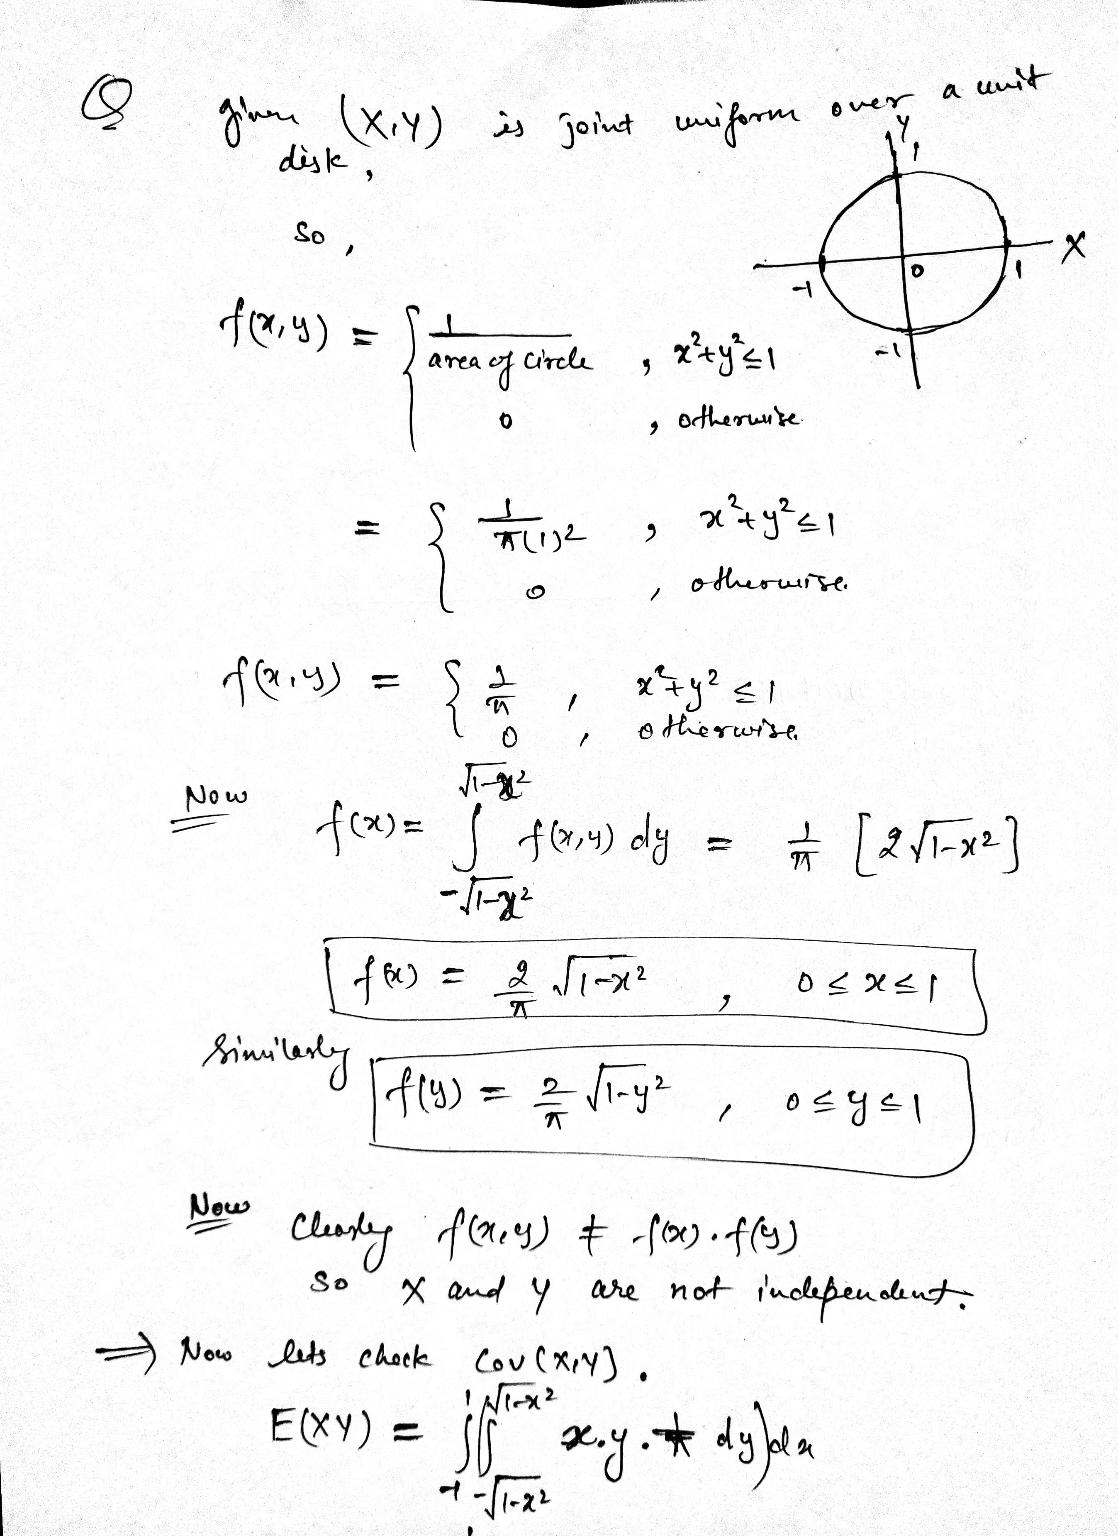 Q given (X,Y) is joint uniform over a unit
disk,
Y
1
X
-1
0
1
-1
so,
f(x,y) = { 1 / area of circle , x²+y²≤1
0 , otherwise
= { 1 / π(1)² , x²+y²≤1
0 , otherwise.
f(x,y) = { 1/π , x²+y²≤1
0 , otherwise.
Now f(x) = ∫_{-√1-x²}^{√1-x²} f(x,y) dy = 1/π [2√1-x²]
f(x) = 2/π √1-x² , 0≤x≤1
Similarly f(y) = 2/π √1-y² , 0≤y≤1
Now Clearly f(x,y) ≠ f(x).f(y)
so X and Y are not independent.
⇒ Now lets check Cov(X,Y).
E(XY) = ∫_{-1}^{1} ∫_{-√1-x²}^{√1-x²} x.y. 1/π dy)dx